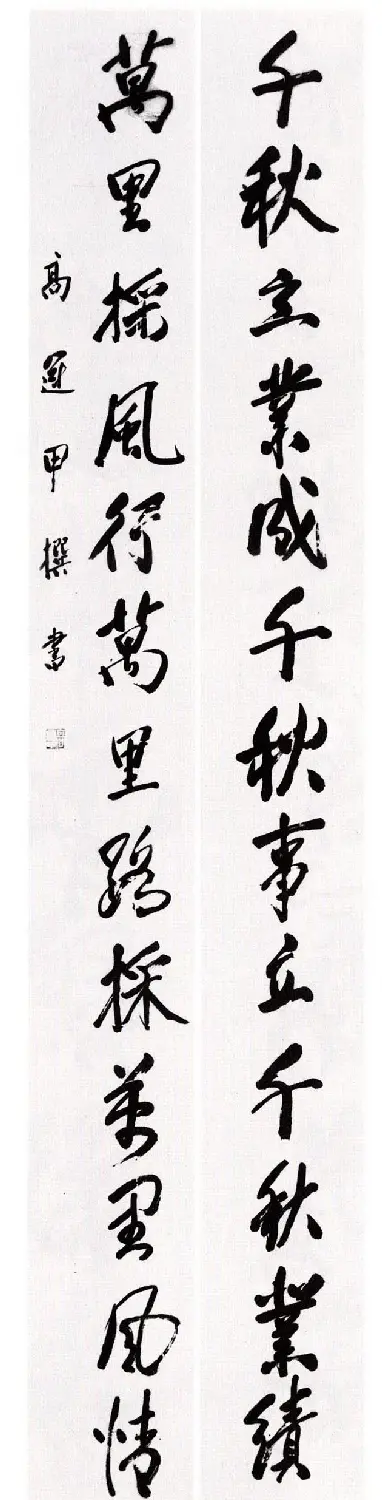 千秋立業成千秋事立千秋業績
萬里採風行萬里路採萬里風情
高運甲撰書